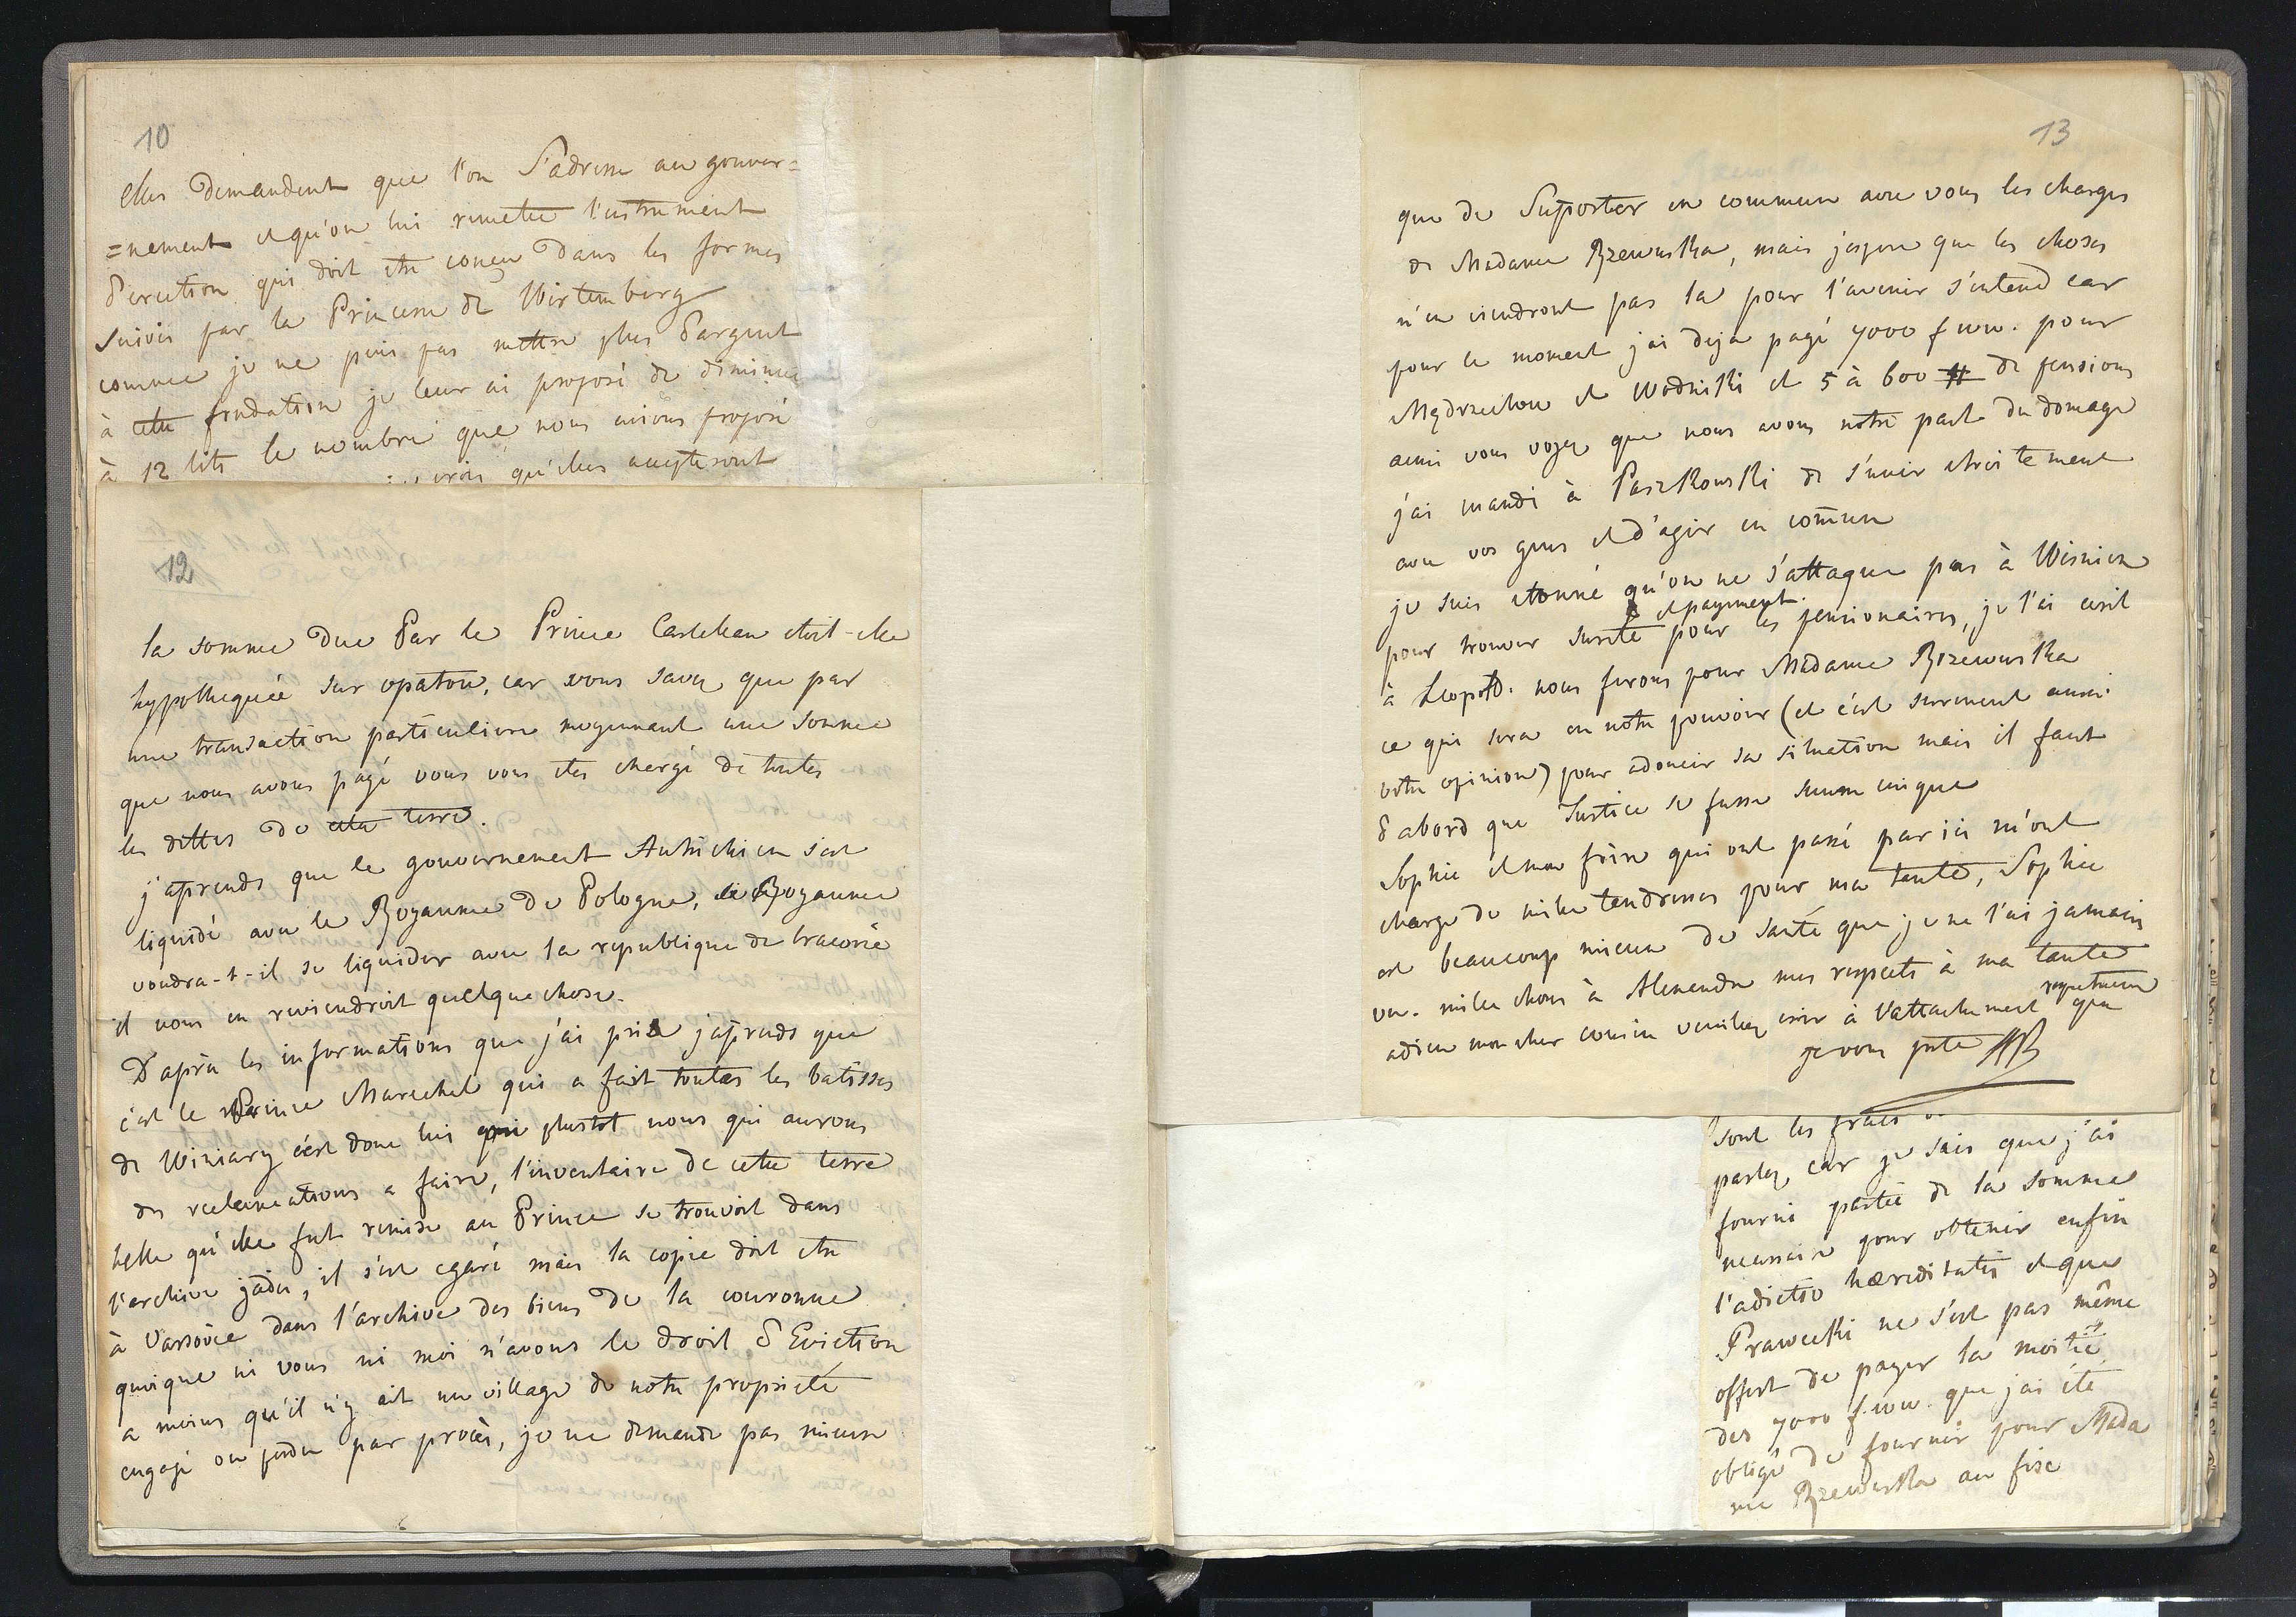 10
elles demandent que l'on s'adresse au gouver=
=nement et qu'on lui remette l'instrument
d'erection qui doit etre conçu dans les formes
suivis par la Princesse de Wirtemberg
comme je ne puis pas mettre plus d'argent
à cette fondation je leur ai proposé de diminuer
à 12 lits le nombre que nous avions proposé
qu'elles accepteront
12
la somme due par le Prince Castelean etoit-elle
hypothequée sur opatow, car vous savez que par
une transaction particuliere moyennant une somme
que nous avons payé vous vous etes chargé de toutes
les dettes de cette terre.
j'aprends que le gouvernement Autrichien s'est
liquidé avec le Royaume de Pologne, le Royaume
voudra-t-il se liquider avec la republique de Cracovie
il vous en reviendroit quelque chose.
D'après les informations que j'ai prise j'aprends que
c'est le Prince Marechal qui a fait toutes les batisses
de Winiary c'est donc lui plustot nous qui aurons
des reclamations a faire, l'inventaire de cette terre
telle qu'elle fut remise au Prince se trouvoit dans
l'archive jadis, il s'est egaré mais la copie doit etre
à Varsovie dans l'archive des biens de la couronne
quoique ni vous ni moi n'avons le droit d'Eviction
a moins qu'il n'y ait un village de notre proprieté
engagé ou perdu par procès, je ne demande pas mieux
13
que de suporter en commun avec vous les charges
de Madame Rzewuska, mais j'espere que les choses
n'en viendront pas la pour l'avenir s'entend car
pour le moment j'ai deja payé 7000 f ww. pour
Mędrzechow et Wodnicki et 5 à 600 # de pensions
ainsi vous voyez que nous avons notre part du domage
j'ai mandé à Paszkowski de s'unir etroitement
avec vos gens et d'agir en com̄un
je suis etonné qu'on ne s'attaque pas à Wisnicz
et payment.
pour trouver sureté pour les pensionaires, je l'ai ecrit
à Leopold. nous ferons pour Madame Rzewuska
ce qui sera en notre pouvoir (et c'est surement aussi
votre opinion) pour adoucir sa situation mais il faut
d'abord que Justice se fasse suum cuique
Sophie et mon frère qui ont passé par ici m'ont
chargé de mille tendresses pour ma tante, Sophie
est beaucoup mieux de santé que je ne l'ai jamais
vu. mille choses à Alexandre mes respects à ma tante
adieu mon cher cousin veuillez croire à l'attachement respectueux que
je vous porte
sont les frais
parlez car je sais que j'ai
fourni partie de la somme
necessaire pour obtenir enfin
l'adictio hæreditatis et que
Prawecki ne s'est pas même
offert de payer la moitié
des 7000 f. ww. que j'ai été
obligé de fournir pour Mada
me Rzewuska au fisc